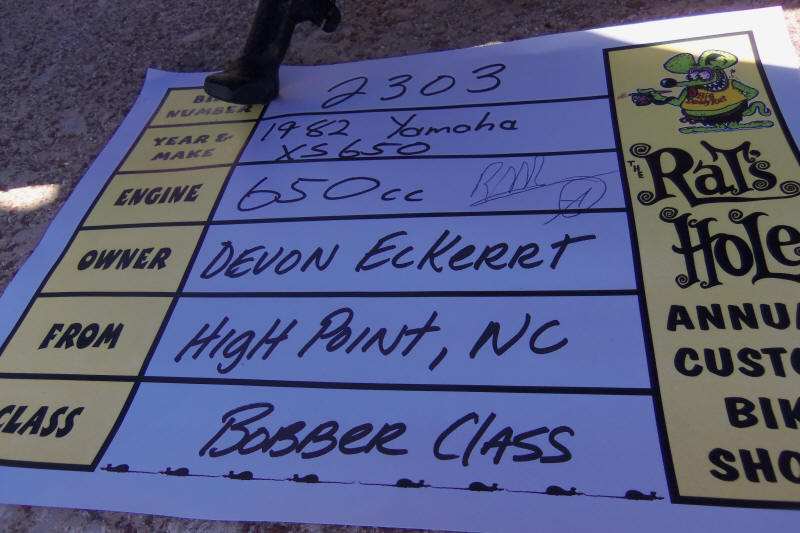 BIKE NUMBER 2303
YEAR & MAKE 1982 Yamaha XS650
ENGINE 650cc
OWNER DEVON ECKERRT
FROM HIGH POINT, NC
CLASS BOBBER CLASS
THE
RAT'S
HOLE
ANNUA
CUSTO
BIK
SHO